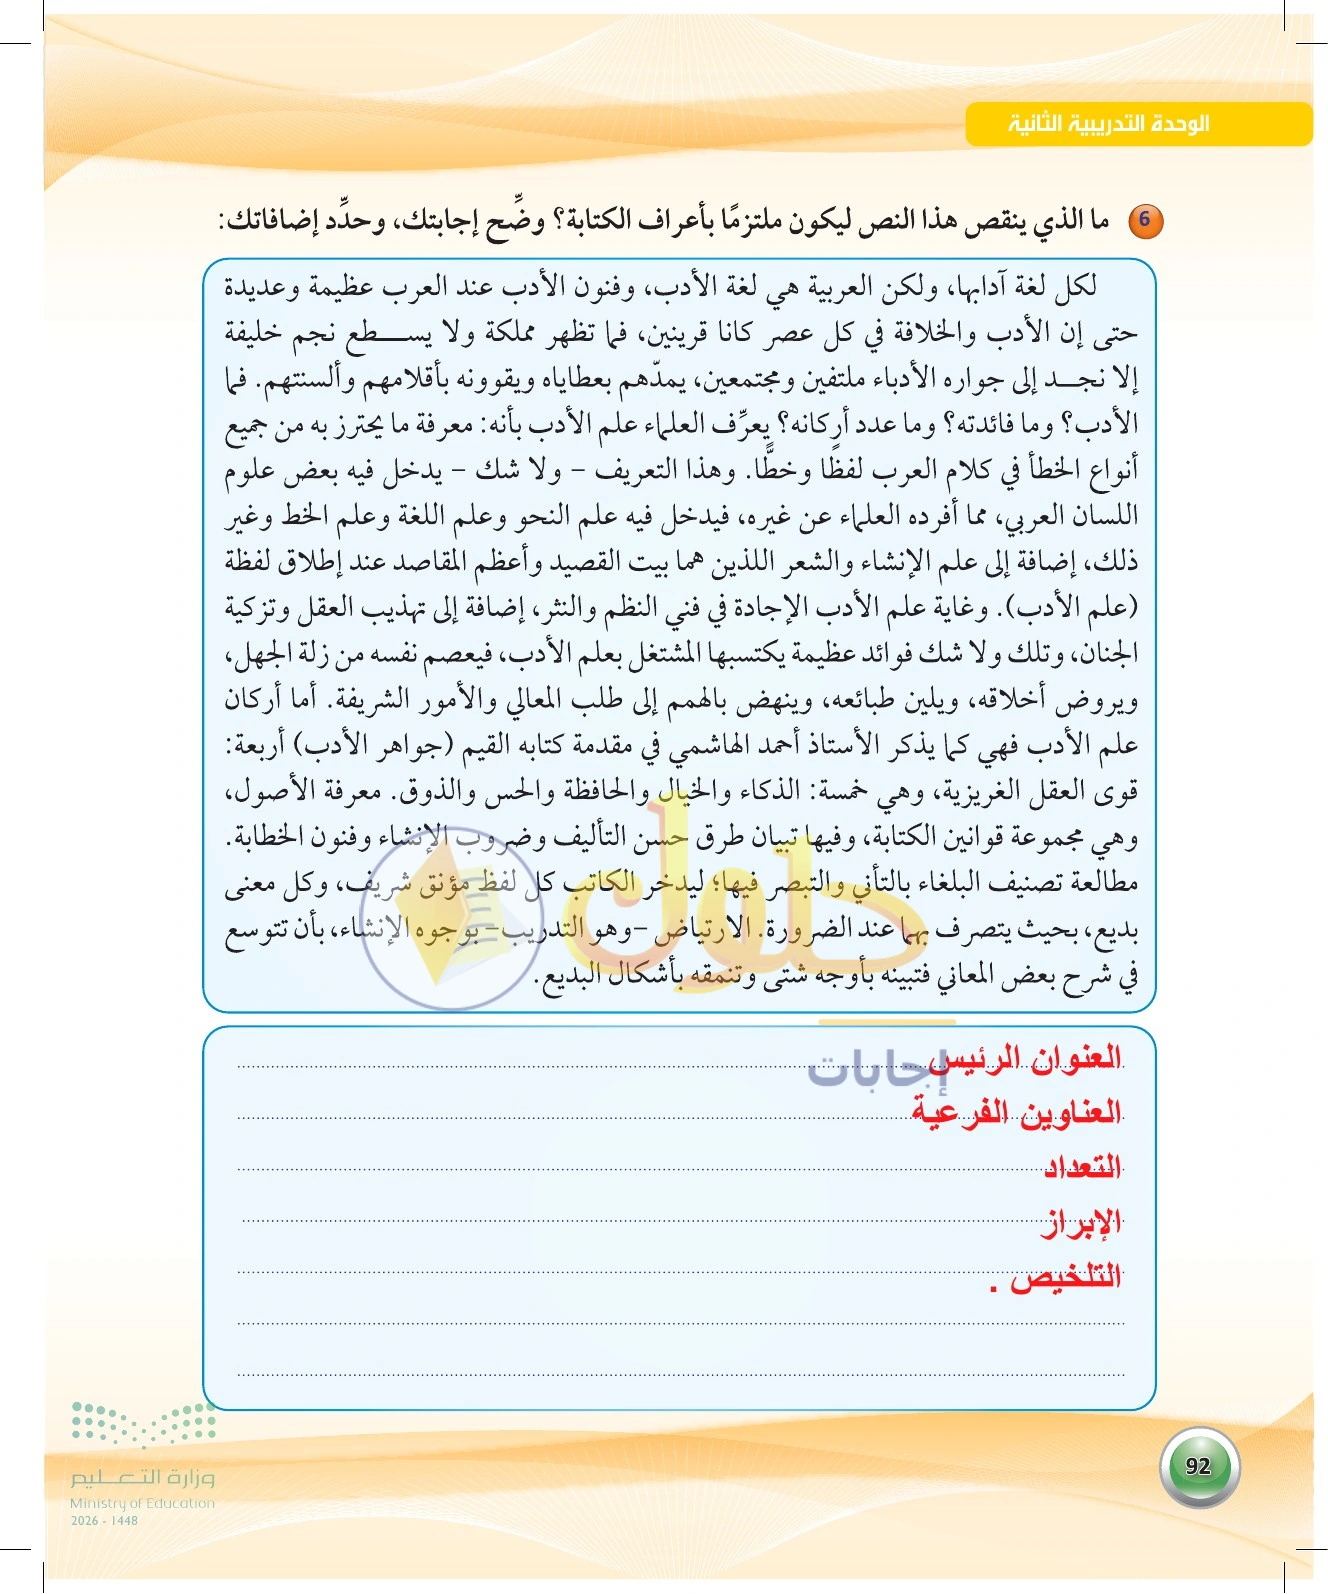 الوحدة التدريبية الثانية
6 ما الذي ينقص هذا النص ليكون ملتزمًا بأعراف الكتابة؟ وضِّح إجابتك، وحدِّد إضافاتك:
لكل لغة آدابها، ولكن العربية هي لغة الأدب، وفنون الأدب عند العرب عظيمة وعديدة
حتى إن الأدب والخلافة في كل عصر كانا قرينين، فما تظهر مملكة ولا يســـطع نجم خليفة
إلا نجـــد إلى جواره الأدباء ملتفين ومجتمعين، يمدّهم بعطاياه ويقوونه بأقلامهم وألسنتهم. فما
الأدب؟ وما فائدته؟ وما عدد أركانه؟ يعرِّف العلماء علم الأدب بأنه: معرفة ما يحترز به من جميع
أنواع الخطأ في كلام العرب لفظًا وخطًّا. وهذا التعريف – ولا شك – يدخل فيه بعض علوم
اللسان العربي، مما أفرده العلماء عن غيره، فيدخل فيه علم النحو وعلم اللغة وعلم الخط وغير
ذلك، إضافة إلى علم الإنشاء والشعر اللذين هما بيت القصيد وأعظم المقاصد عند إطلاق لفظة
(علم الأدب). وغاية علم الأدب الإجادة في فني النظم والنثر، إضافة إلى تهذيب العقل وتزكية
الجنان، وتلك ولا شك فوائد عظيمة يكتسبها المشتغل بعلم الأدب، فيعصم نفسه من زلة الجهل،
ويروض أخلاقه، ويلين طبائعه، وينهض بالهمم إلى طلب المعالي والأمور الشريفة. أما أركان
علم الأدب فهي كما يذكر الأستاذ أحمد الهاشمي في مقدمة كتابه القيم (جواهر الأدب) أربعة:
قوى العقل الغريزية، وهي خمسة: الذكاء والخيال والحافظة والحس والذوق. معرفة الأصول،
وهي مجموعة قوانين الكتابة، وفيها تبيان طرق حسن التأليف وضروب الإنشاء وفنون الخطابة.
مطالعة تصنيف البلغاء بالتأني والتبصر فيها؛ ليدخر الكاتب كل لفظ مؤنق شريف، وكل معنى
بديع، بحيث يتصرف بهما عند الضرورة. الارتياض –وهو التدريب– بوجوه الإنشاء، بأن تتوسع
في شرح بعض المعاني فتبينه بأوجه شتى وتنمقه بأشكال البديع.
حلول
إجابات
العنوان الرئيس
العناوين الفرعية
التعداد
الإبراز
التلخيص .
وزارة التعـــليم
Ministry of Education
2026 - 1448
92